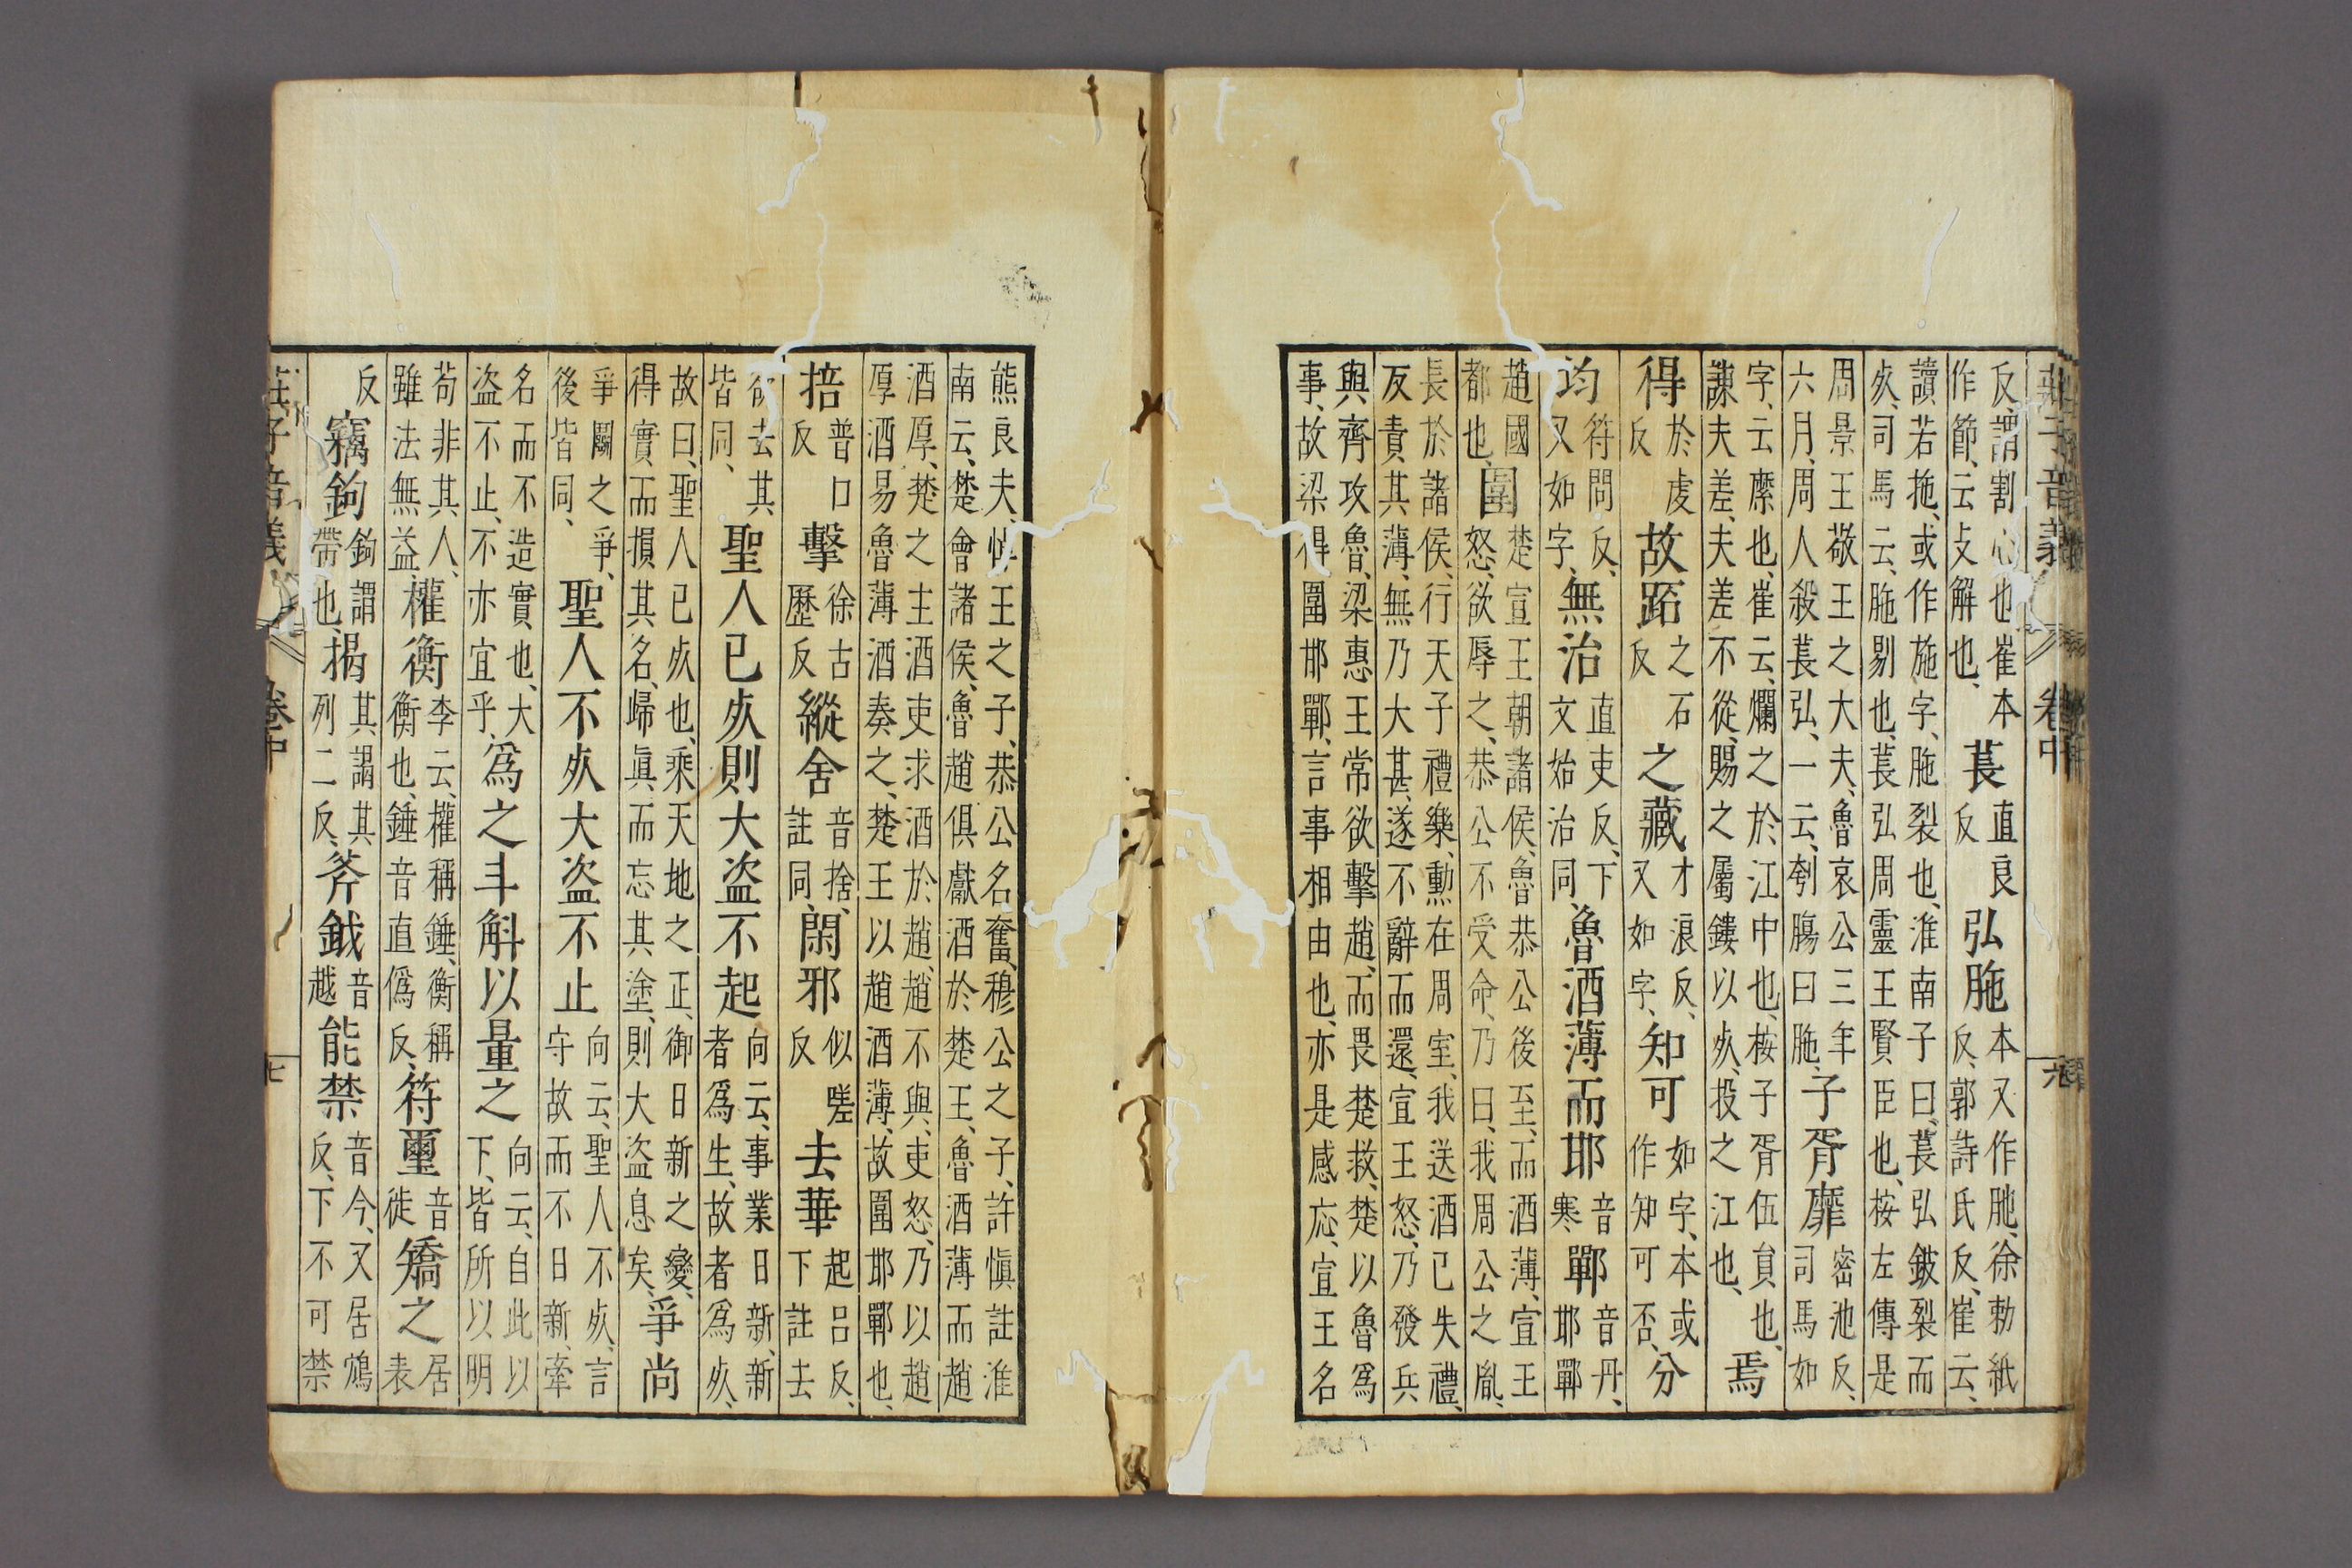 莊子音義 卷中
反、謂割心也、崔本作節、云攴解也、萇直良反弘胣本又作肔、徐勅紙反、郭詩氏反、崔云、
讀若拖、或作施字、胣裂也、淮南子曰、萇弘鈹裂而死、司馬云、胣剔也、萇弘周靈王賢臣也、按左傳是
周景王敬王之大夫、魯哀公三年六月、周人殺萇弘、一云、刳腸曰胣、子胥靡密池反、司馬如
字、云縻也、崔云、爛之於江中也、按子胥伍員也、諫夫差、夫差不從、賜之屬鏤以死、投之江也、焉
得於虔反故跖之石反之藏才浪反、又如字、知可如字、本或作知可否、分
均符問反、又如字、無治直吏反、下文始治同、魯酒薄而邯音寒鄲音丹、邯鄲
趙國都也、圍楚宣王朝諸侯、魯恭公後至、而酒薄、宣王怒、欲辱之、恭公不受命、乃曰、我周公之胤、
長於諸侯、行天子禮樂、勳在周室、我送酒已失禮、方責其薄、無乃大甚、遂不辭而還、宣王怒、乃發兵
與齊攻魯、梁惠王常欲擊趙、而畏楚救、楚以魯爲事、故梁得圍邯鄲、言事相由也、亦是感応、宣王名
熊良夫、悼王之子、恭公名奮、穆公之子、許愼註淮南云、楚會諸侯、魯趙俱獻酒於楚王、魯酒薄而趙
酒厚、楚之主酒吏求酒於趙、趙不與、吏怒、乃以趙厚酒易魯薄酒奏之、楚王以趙酒薄、故圍邯鄲也、
掊普口反擊徐古歷反縱舍音捨、註同、閑邪似嗟反去華起呂反、下註去
欲去其皆同、聖人已死則大盜不起向云、事業日新、新者爲生、故者爲死、
故曰、聖人已死也、乘天地之正、御日新之變、得實而損其名、歸眞而忘其塗、則大盜息矣、爭尚
爭鬭之爭、後皆同、聖人不死大盜不止向云、聖人不死、言守故而不日新、牽
名而不造實也、大盜不止、不亦宜乎、爲之斗斛以量之向云、自此以下、皆所以明
苟非其人、雖法無益、權衡李云、權稱錘、衡稱衡也、錘音直僞反、符璽音徙矯之居表
反竊鉤鉤謂帶也、揭其謁其列二反、斧鉞音越能禁音今、又居鴆反、下不可禁
莊子音義 卷中 七